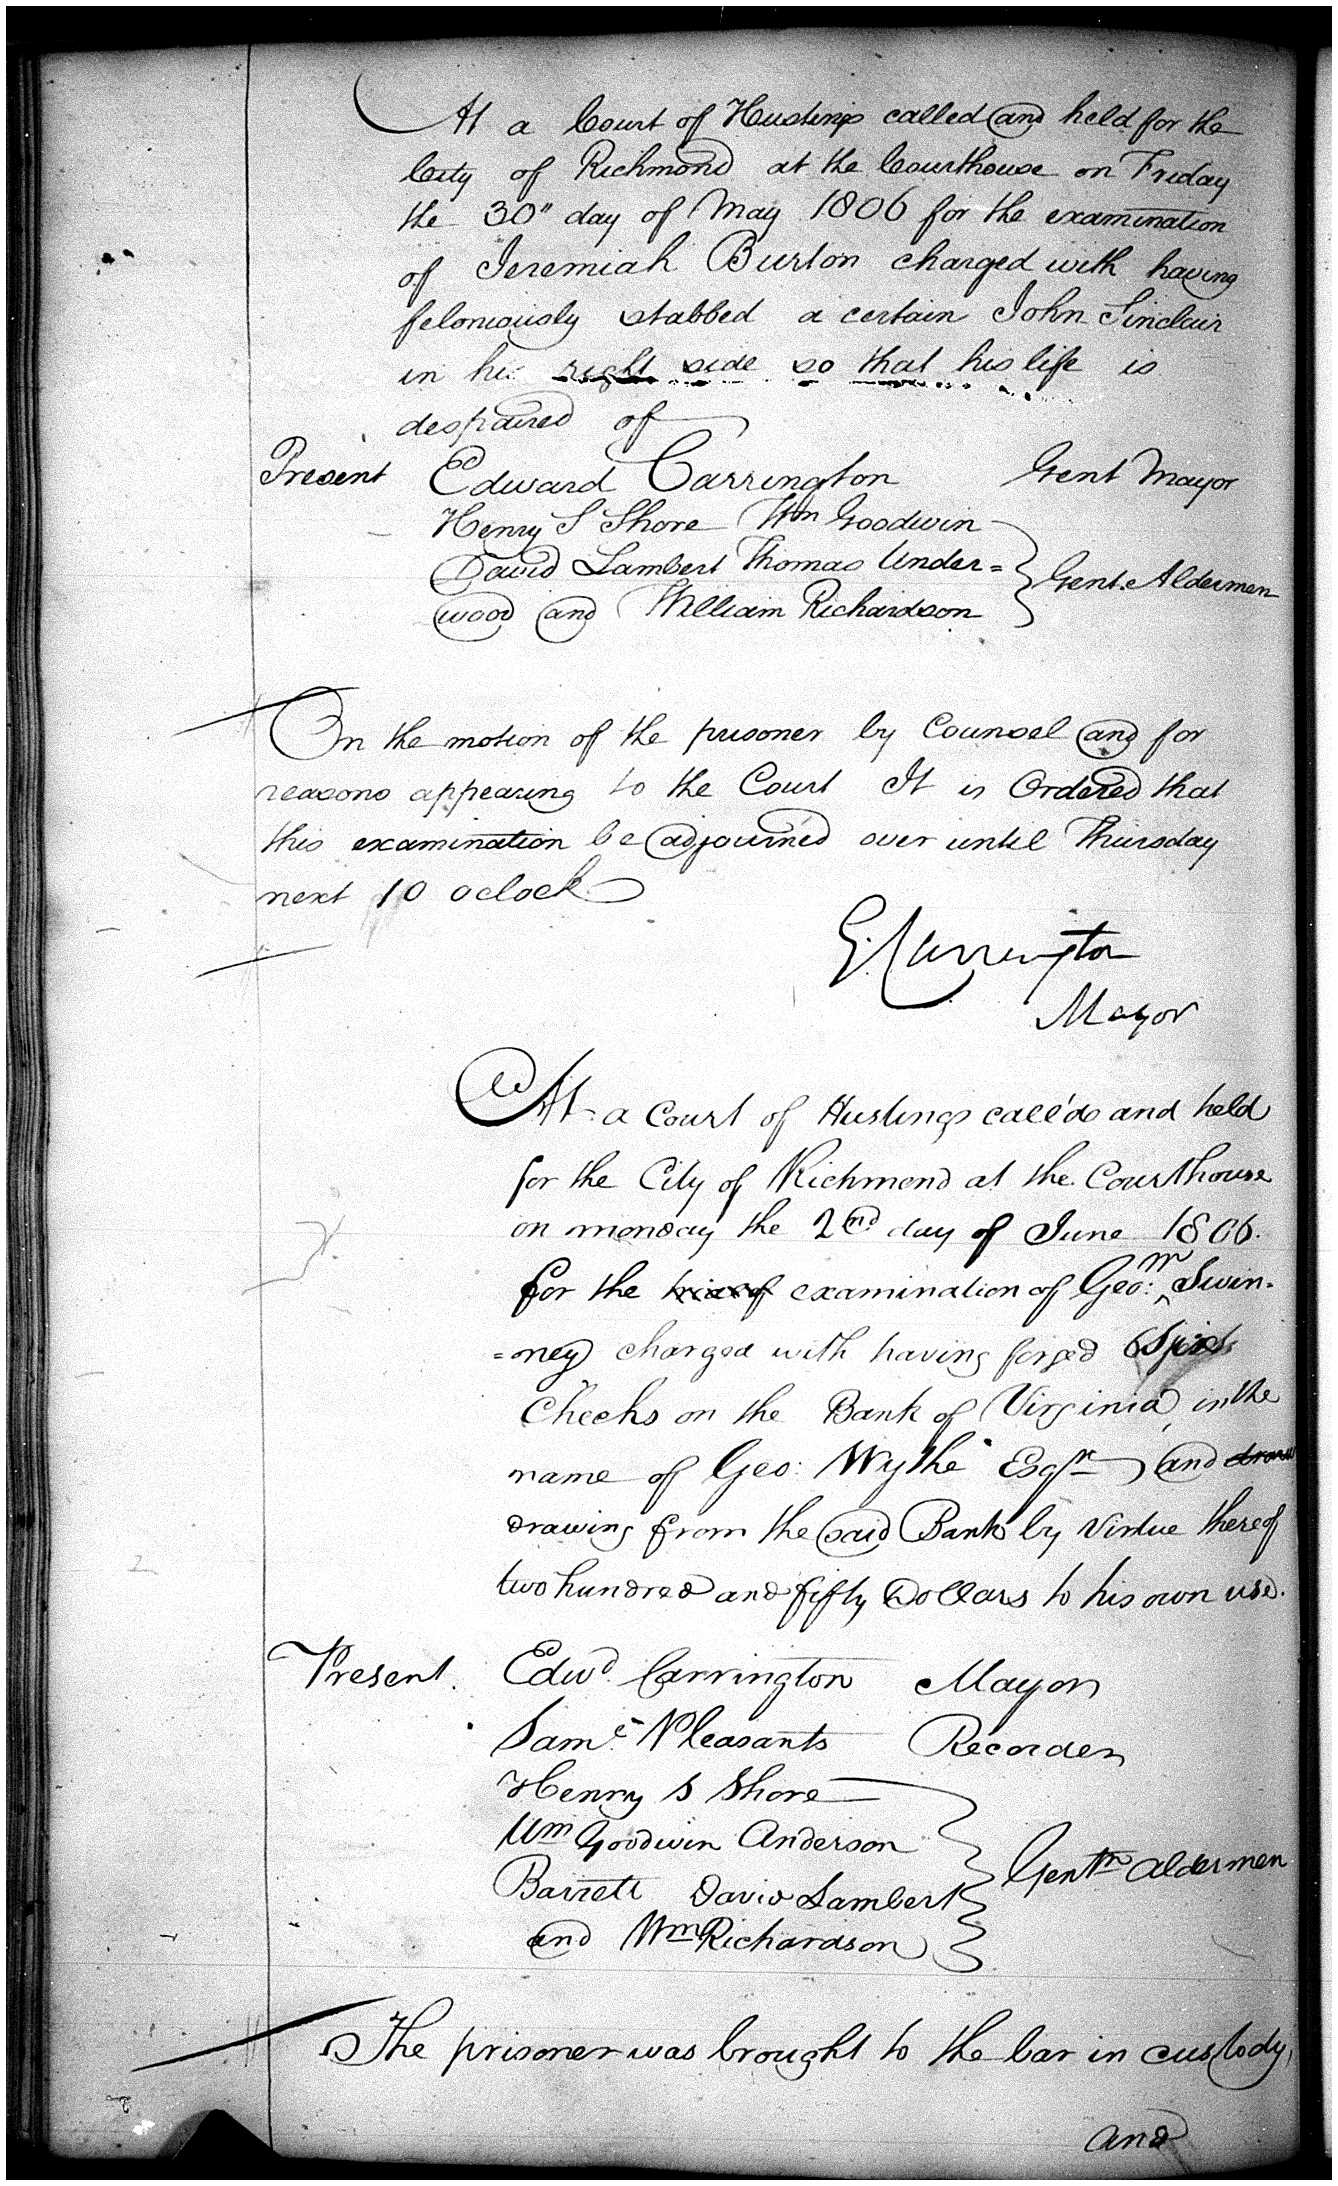 At a Court of Hustings called and held for the
City of Richmond at the Courthouse on Friday
the 30" day of May 1806 for the examination
of Jeremiah Burton charged with having
feloniously stabbed a certain John Sinclair
in his right side so that his life is
despaired of
Present Edward Carrington Gent Mayor
Henry S Shore Wm Goodwin
David Lambert Thomas Under=
wood and William Richardson
Gent. Aldermen
On the motion of the prisoner by Counsel and for
reasons appearing to the Court It is Ordered that
this examination be adjourned over until Thursday
next 10 oclock
E. Carrington
Mayor
At a Court of Hustings call'd and held
for the City of Richmond at the Courthouse
on monday the 2nd day of June 1806.
for the trial of examination of Geo: W Swin-
=ney charged with having forged 6
Checks on the Bank of Virginia, in the
name of Geo: Wythe Esqr and draw
drawing from the said Bank by virtue thereof
two hundred and fifty Dollars to his own use.
Present. Edwd. Carrington Mayor
Saml. Pleasants Recorder
Henry S Shore
Wm Goodwin Anderson
Barrett David Lambert
and Wm Richardson
Gentn Aldermen
The prisoner was brought to the bar in custody,
and